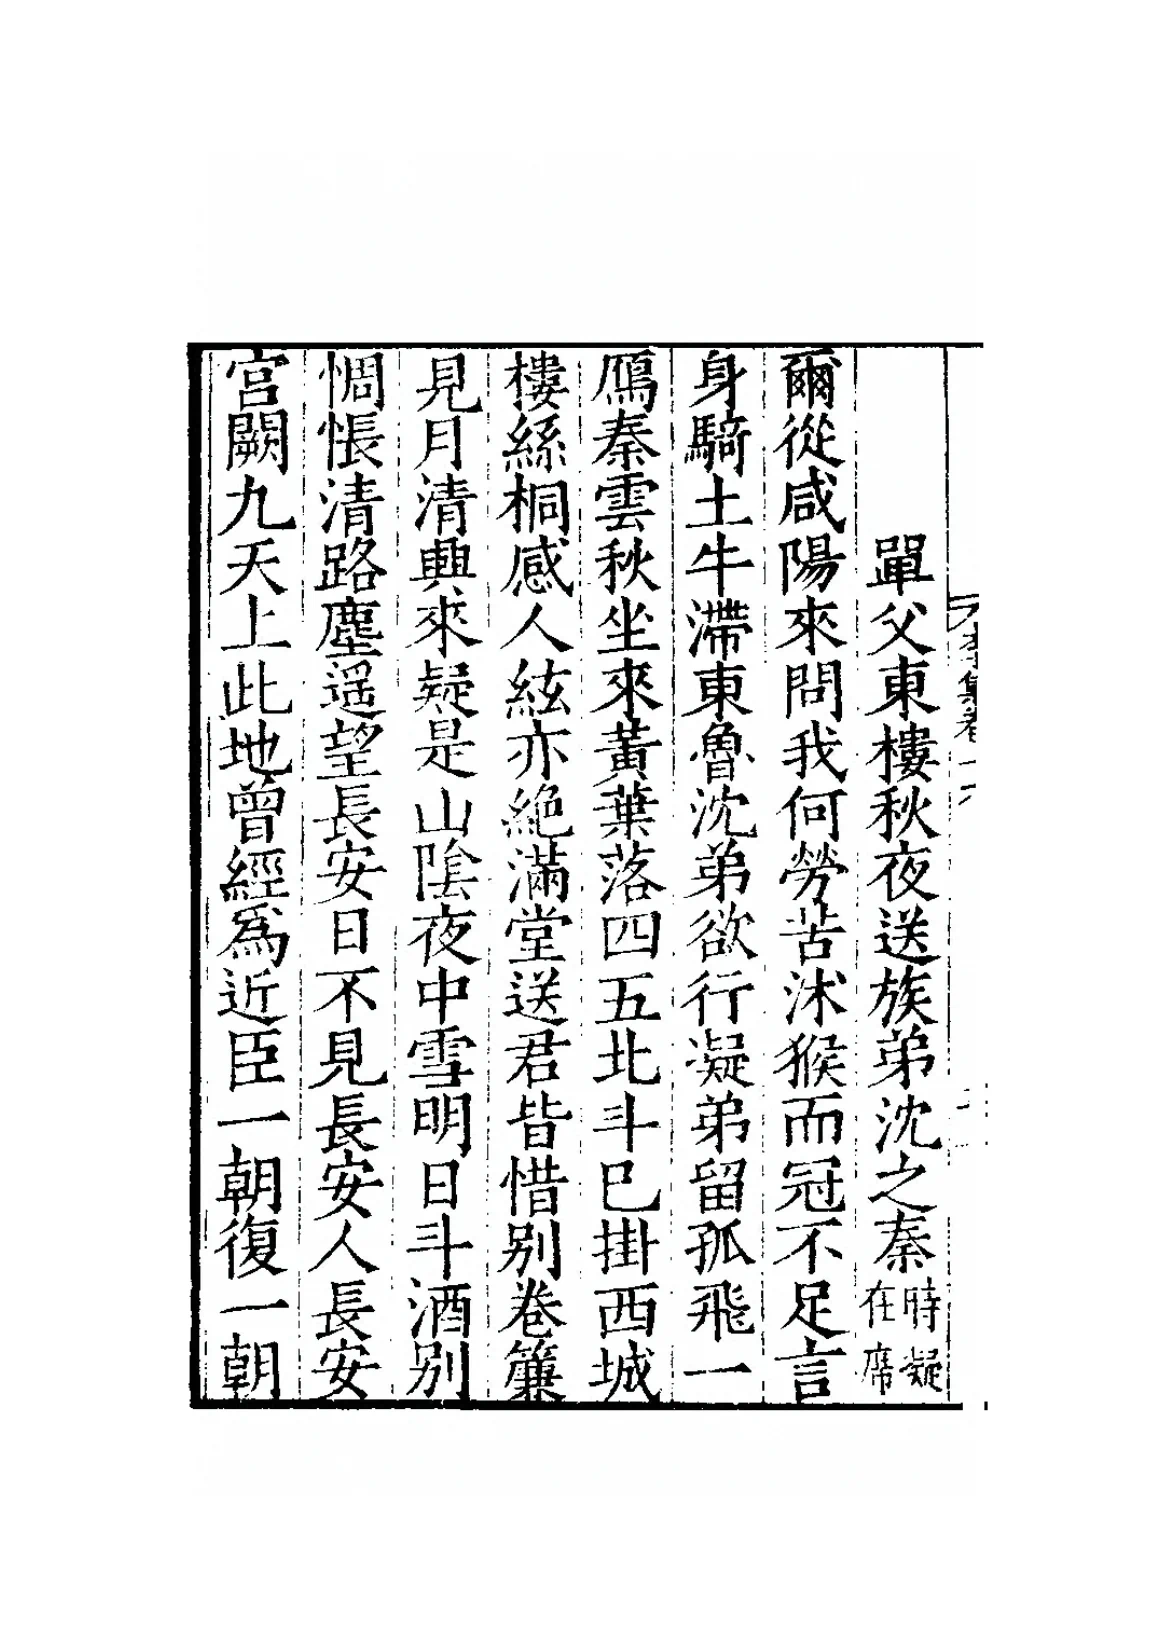 單父東樓秋夜送族弟沈之秦時凝在席
爾從咸陽來問我何勞苦沐猴而冠不足言
身騎土牛滯東魯沈弟欲行凝弟留孤飛一
鴈秦雲秋坐來黃葉落四五北斗已掛西城
樓絲桐感人絃亦絶滿堂送君皆惜别卷簾
見月清興來疑是山隂夜中雪明日斗酒别
惆悵清路塵遥望長安日不見長安人長安
宫闕九天上此地曾經爲近臣一朝復一朝